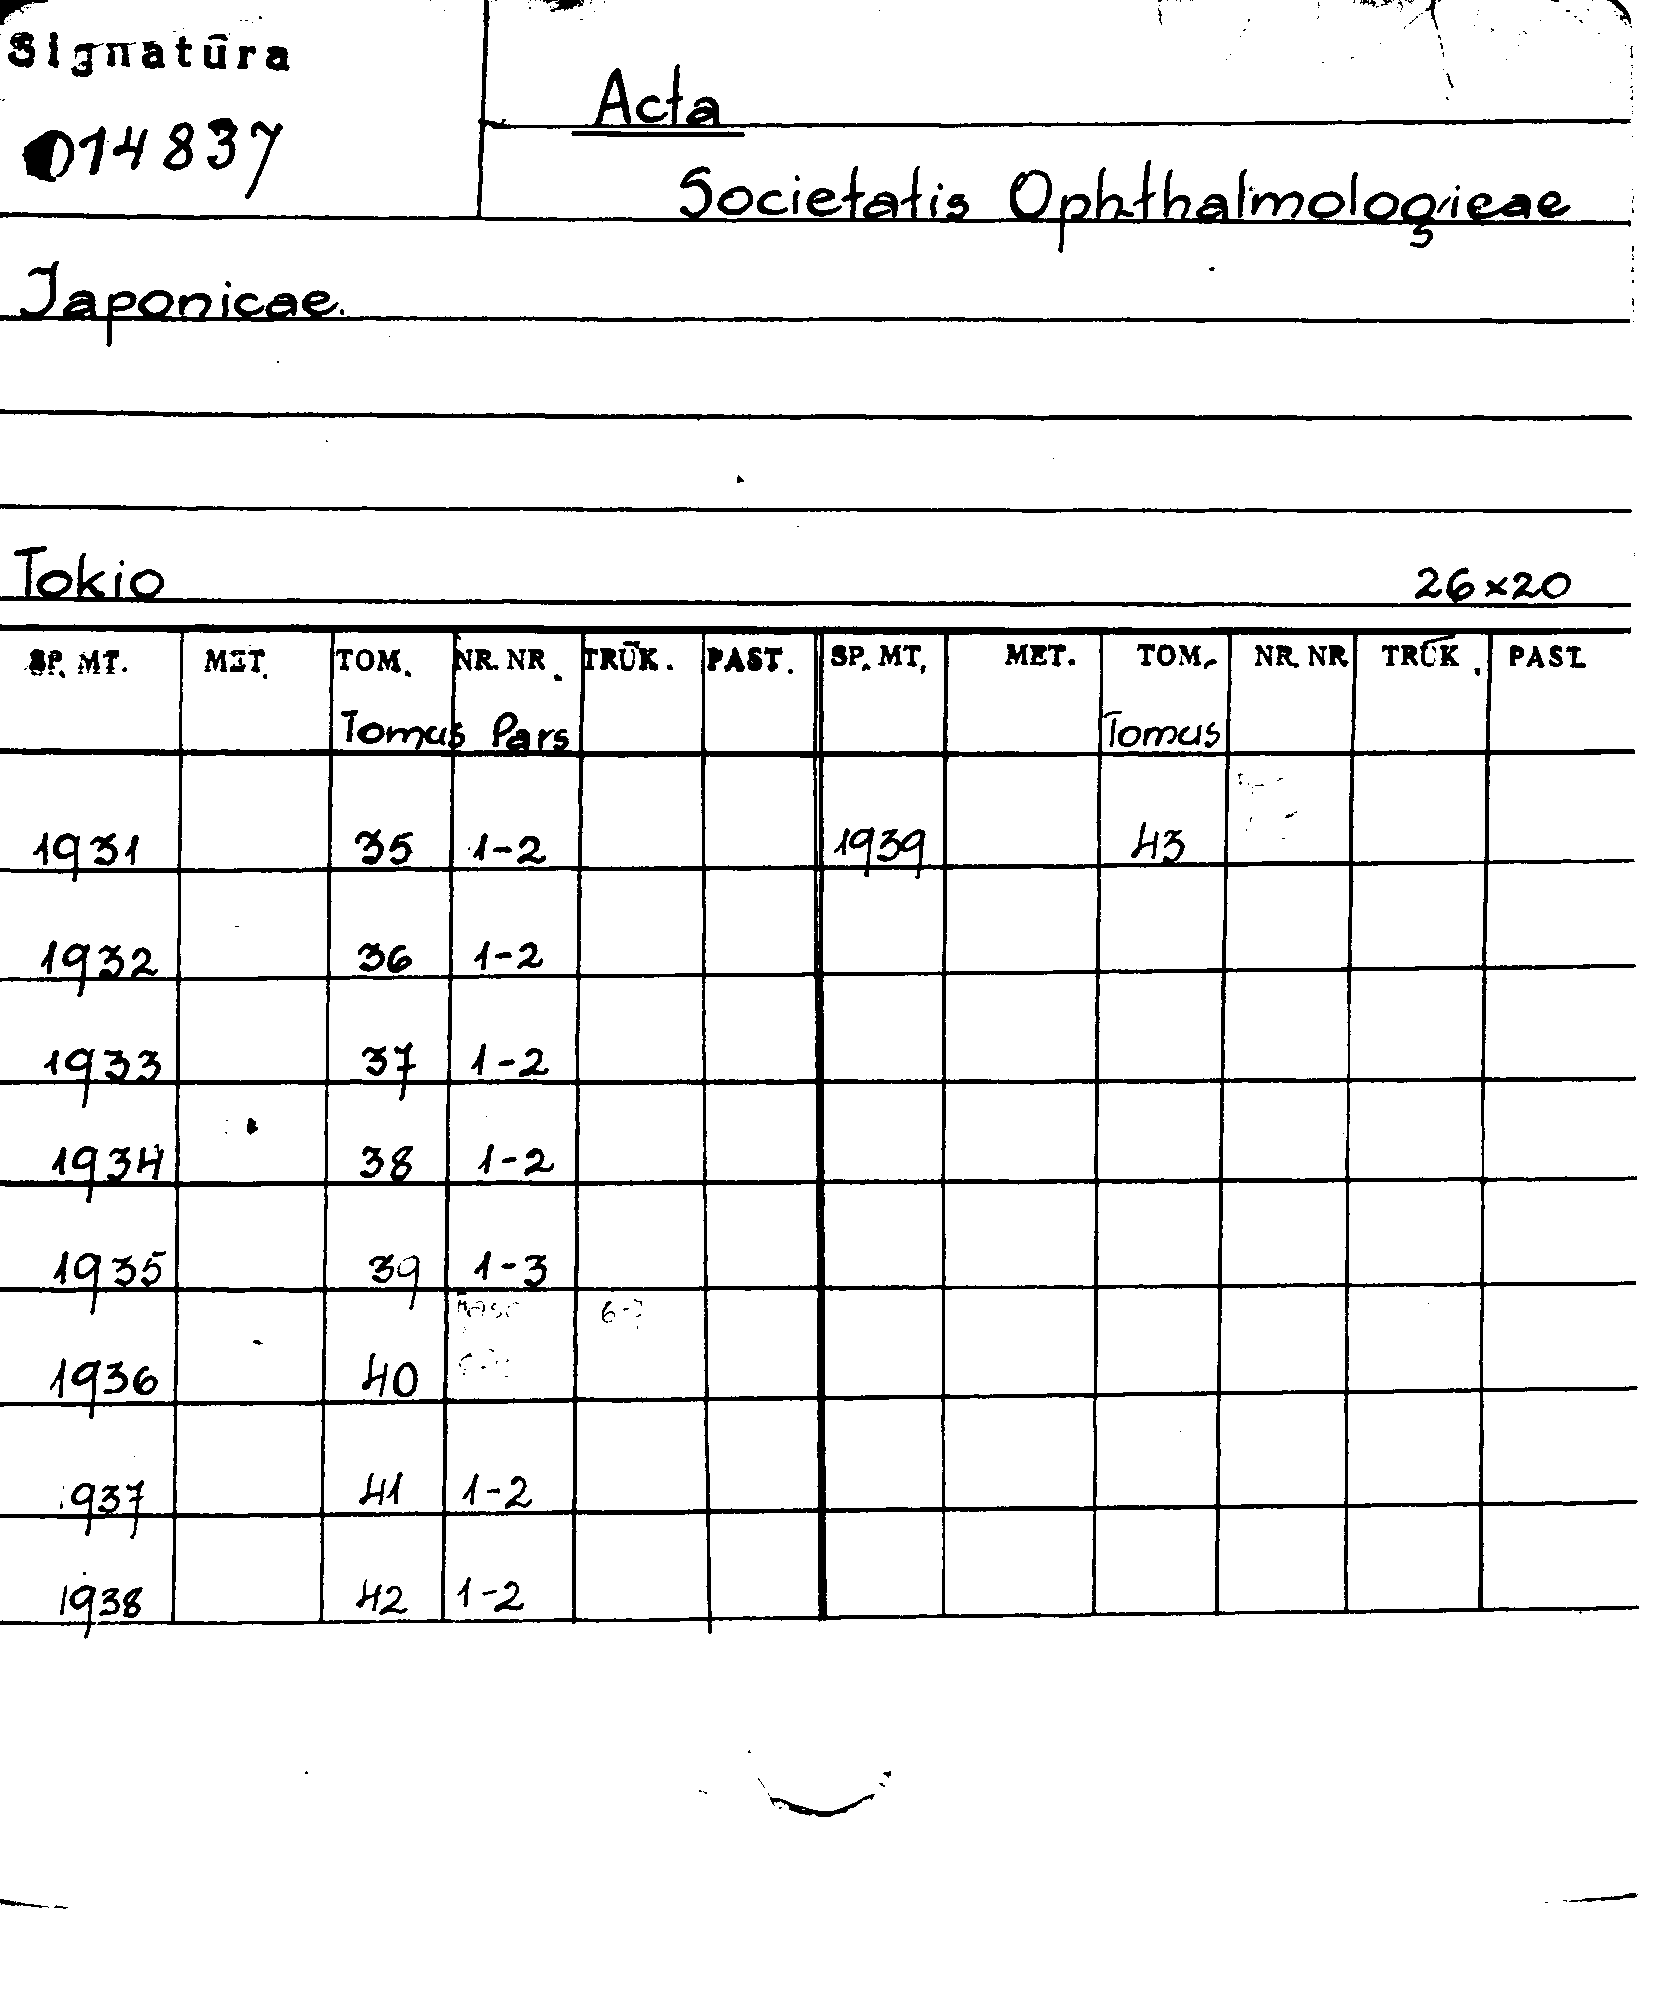 Signatūra
014837
Acta
Societatis Ophthalmologieae
Japonicae.
Tokio 26x20
SP. MT. MET. TOM. NR. NR. TRŪK. PAST. SP. MT. MET. TOM. NR. NR TRŪK. PAST.
Tomus Pars Tomus
1931 35 1-2 1939 43
1932 36 1-2
1933 37 1-2
1934 38 1-2
1935 39 1-3
1936 40
1937 41 1-2
1938 42 1-2